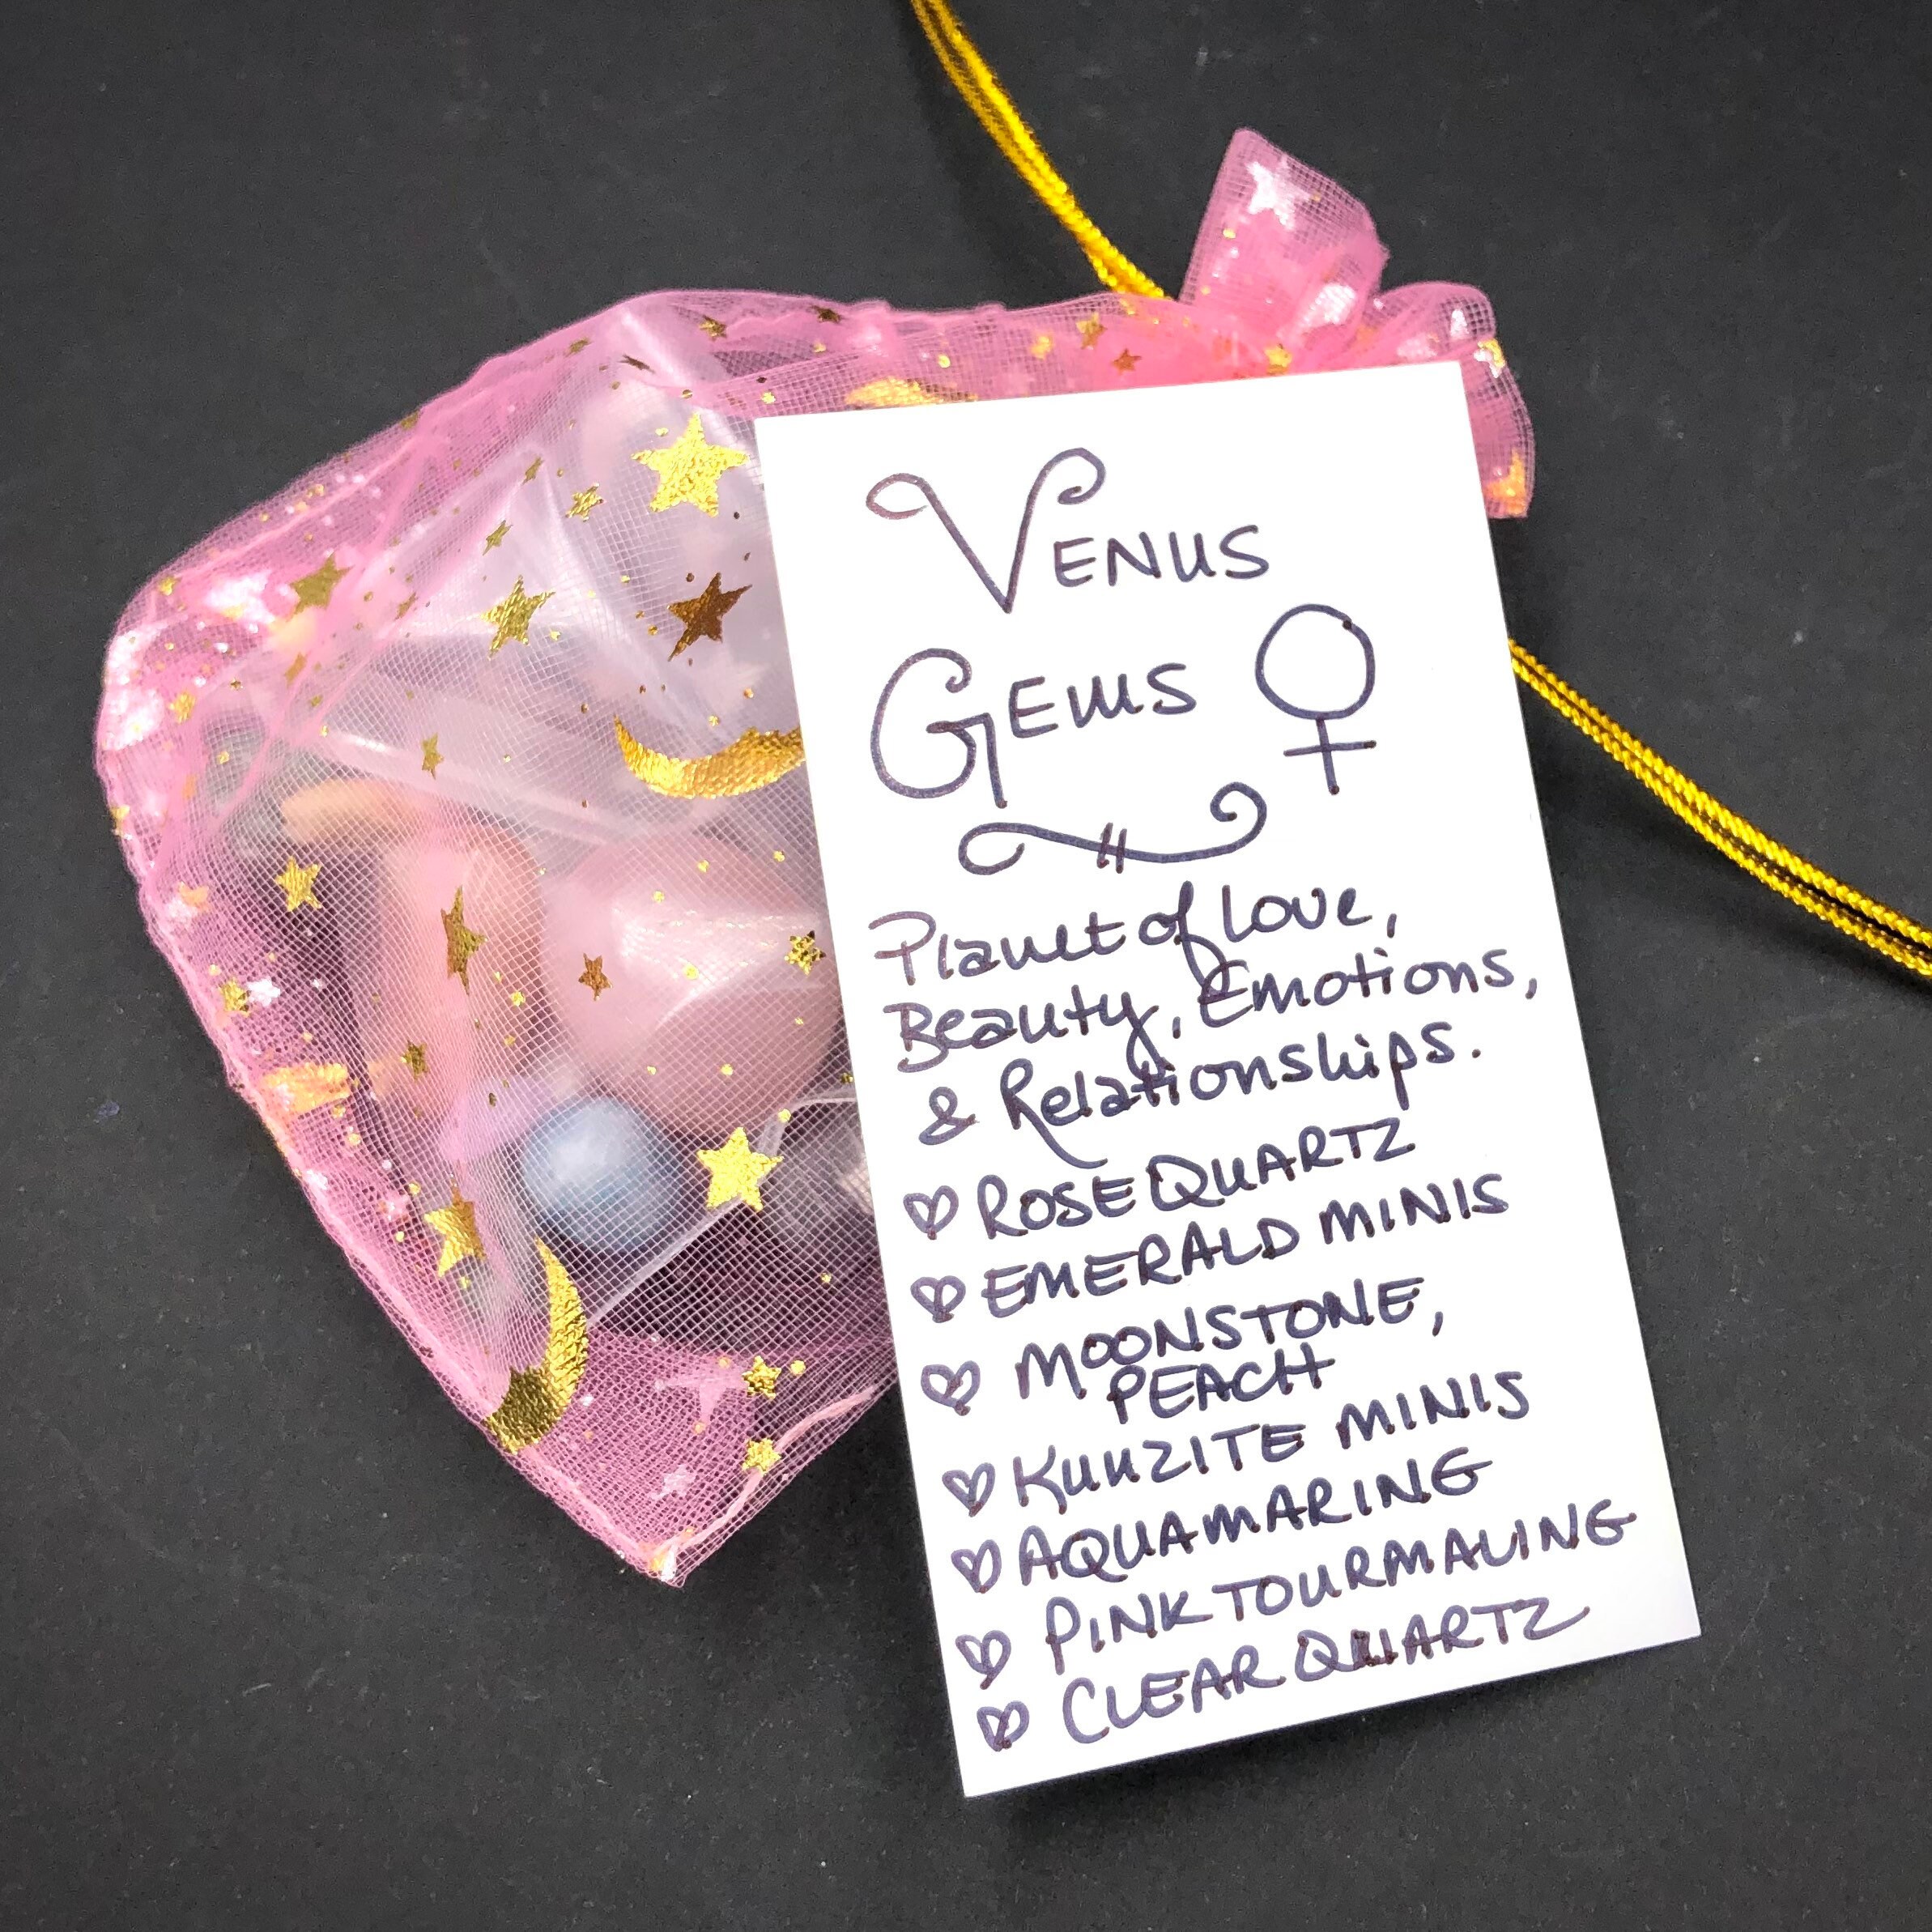 VENUS
GEMS ♀
Planet of Love,
Beauty, Emotions,
& Relationships.
♡ ROSE QUARTZ
♡ EMERALD MINIS
♡ MOONSTONE,
PEACH
♡ KUNZITE MINIS
♡ AQUAMARINE
♡ PINK TOURMALINE
♡ CLEAR QUARTZ